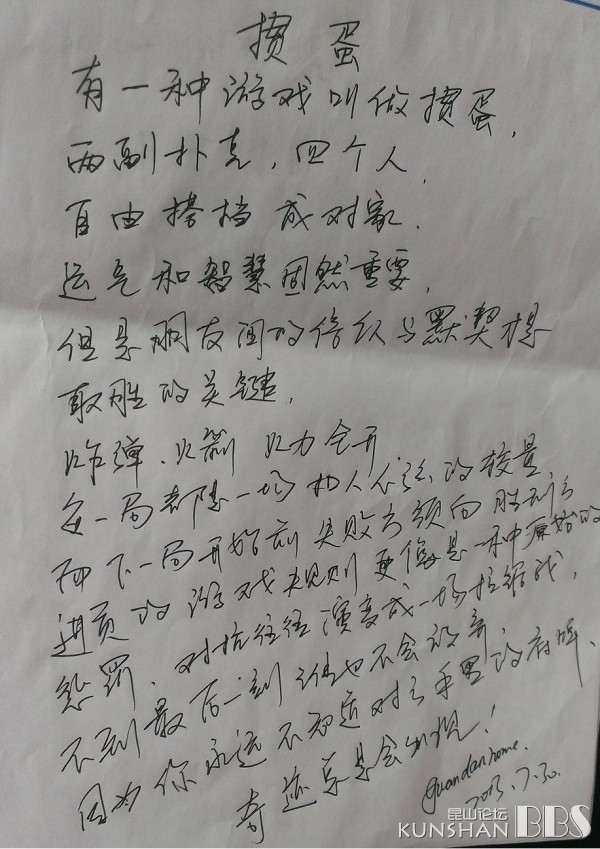 掼蛋
有一种游戏叫做掼蛋,
两副扑克,四个人,
自由搭档成对家.
运气和智慧固然重要,
但是朋友间的信任与默契是
取胜的关键,
炸弹、火箭 火力全开
每一局都是一场扣人心弦的较量,
而下一局开始前失败方须向胜利方
进贡的游戏规则更像是一种原始的
惩罚,对抗往往演变成一场拉锯战,
不到最后一刻谁也不会放弃,
因为你永远不知道对方手里的底牌、
奇迹总是会出现!
guandanhome.
2013.7.30.
昆山论坛
KUNSHAN BBS